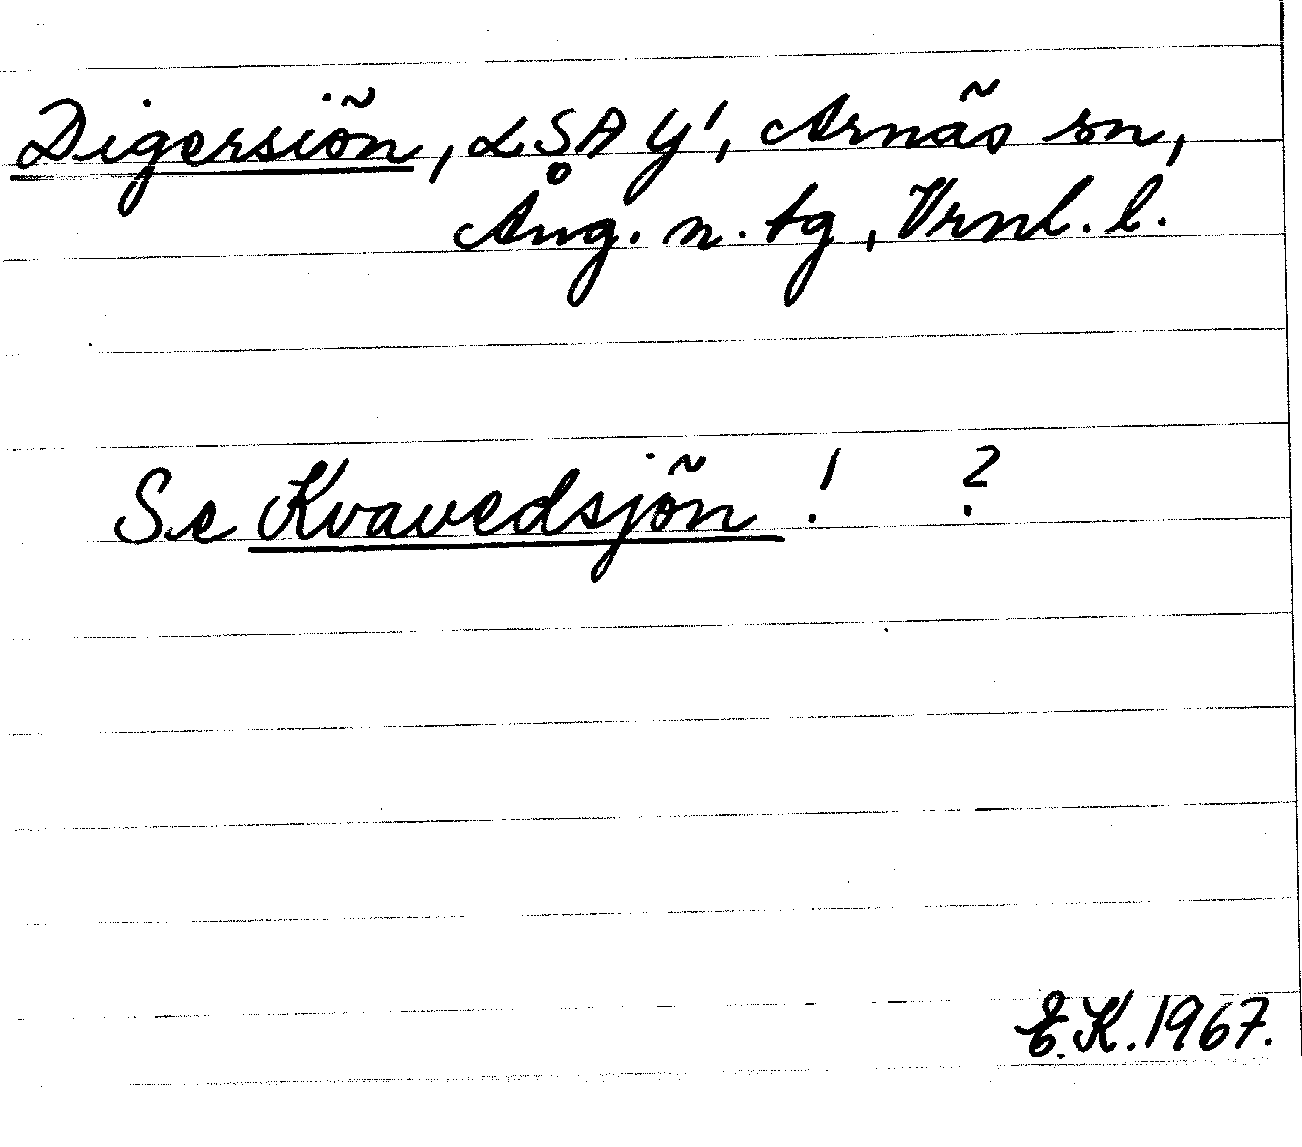 Digersiön, LSA Y', Arnäs sn,
Ång. n. tg, Vrnl. l.
Se Kvavedsjön ! ?
E.K. 1967.